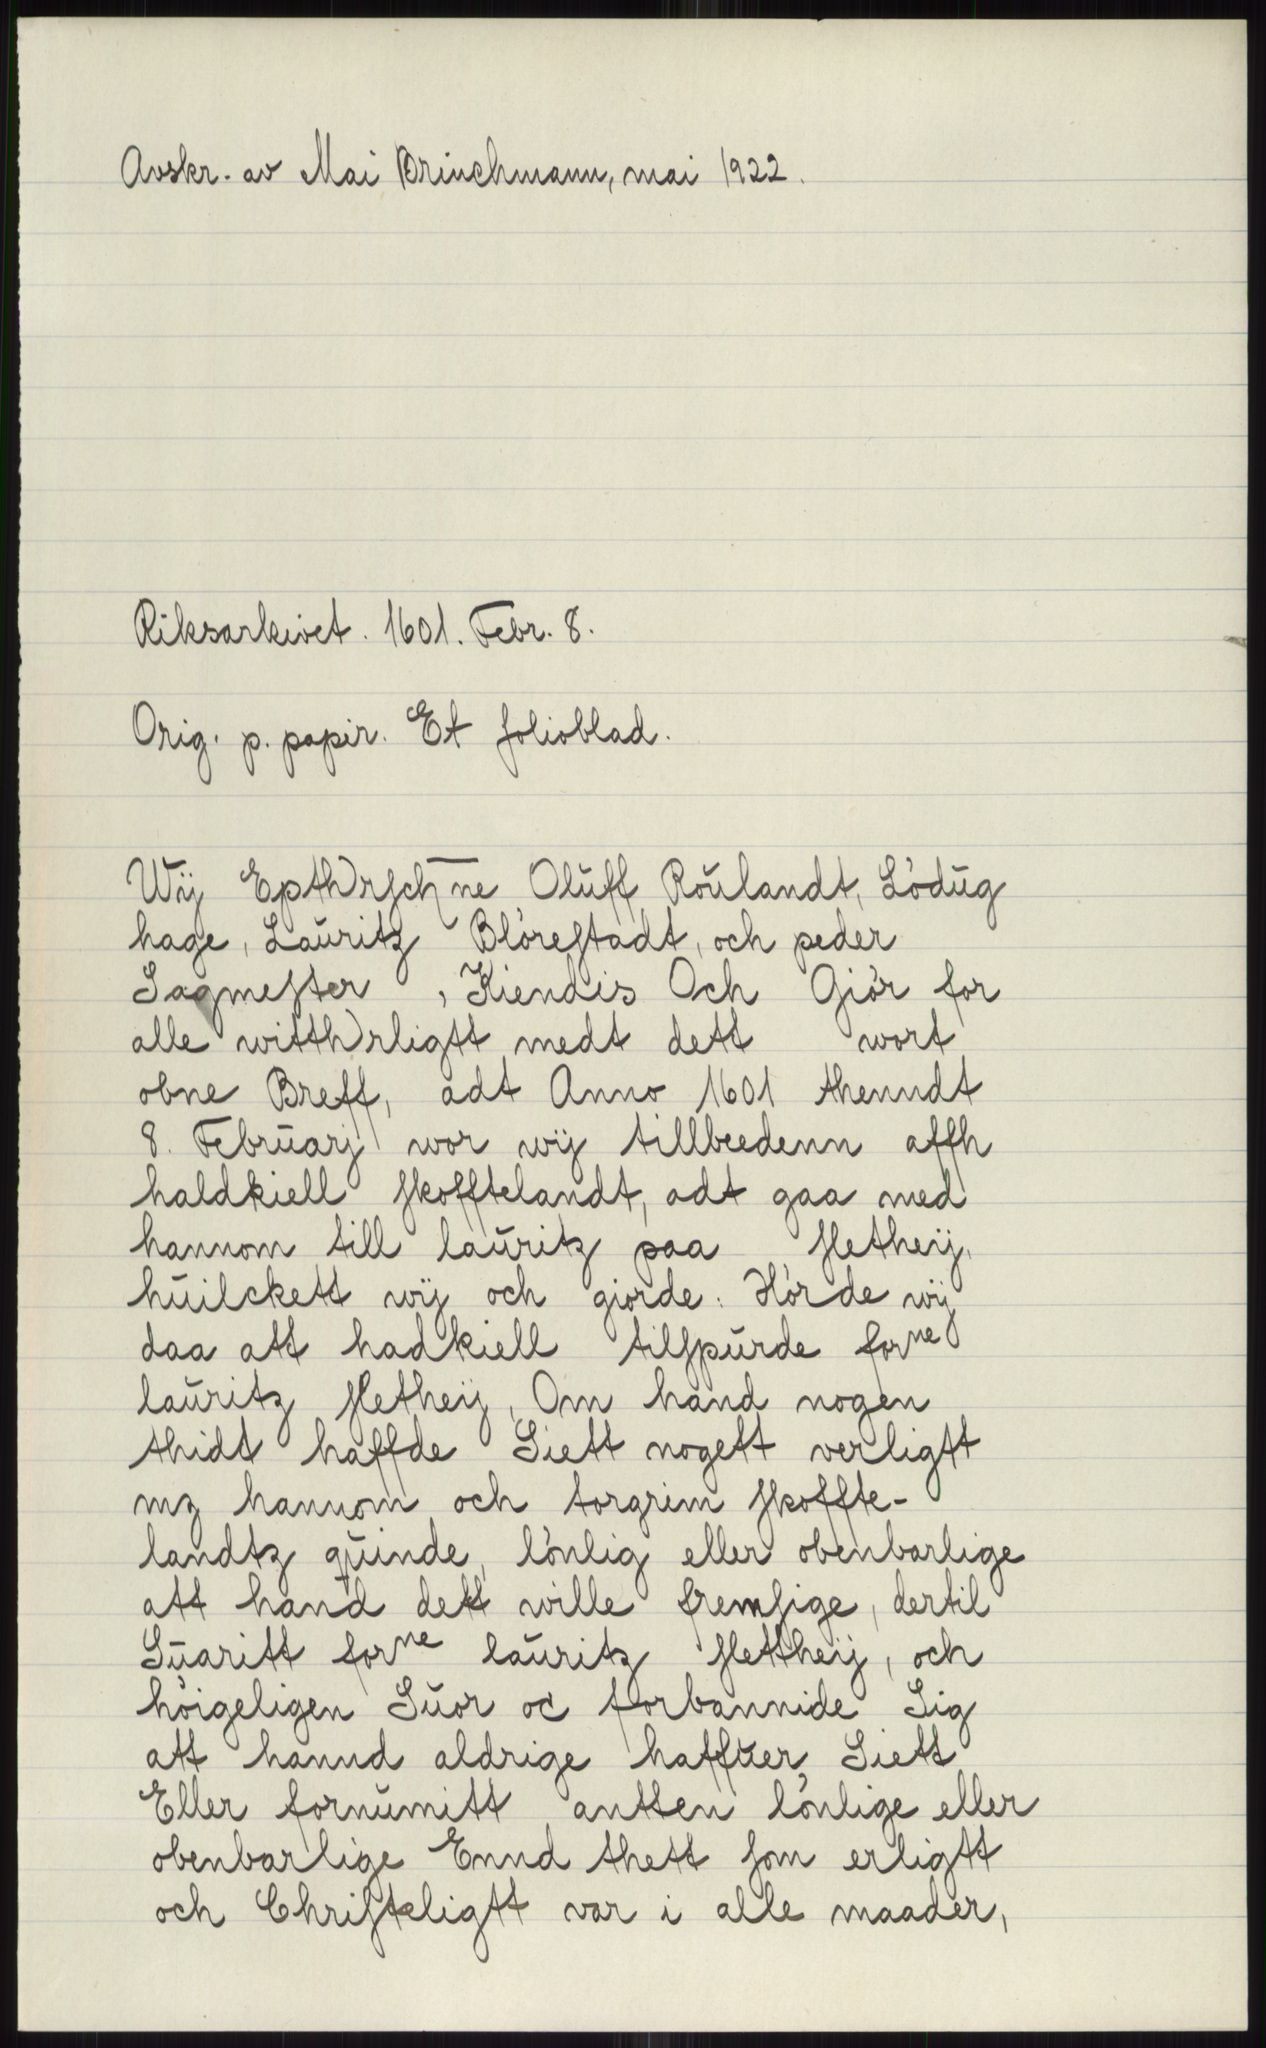 Avskr. av Mai Brinchmann, mai 1922.
Riksarkivet. 1601. Febr. 8.
Orig. p. papir. Et folioblad.
Wij Epthrſch̄ne Oluff Roulandt, Lödug
hage, Lauritz Blöreſtadt, och peder
Sagmeſter, Kiendis Och Giör for
alle witthrligtt medt dett wort
obne Breff, adt Anno 1601 thenndt
8. Februarj wor wij tillbeedenn affh
haldkiell ſkofftelandt, adt gaa med
hannom till lauritz paa ſletheij,
huilckett wij och giorde. Hörde wij
daa att hadkiell tilſpurde forne
lauritz ſletheij, Om hand nogen
thidt haffde Siett nogett verligtt
mz hannom och torgrim ſkoffte-
landtz quinde, lönlig eller obenbarlige
att hand dett wille fremſige, dertil
Suaritt forne lauritz ſlettheij, och
höigeligen Suor oc forbannide Sig
att hannd aldrige haffuer Siett
Eller fornumitt antten lönlige eller
obenbarlige Ennd thett ſom erligtt
och Chriſteligtt var i alle maader,